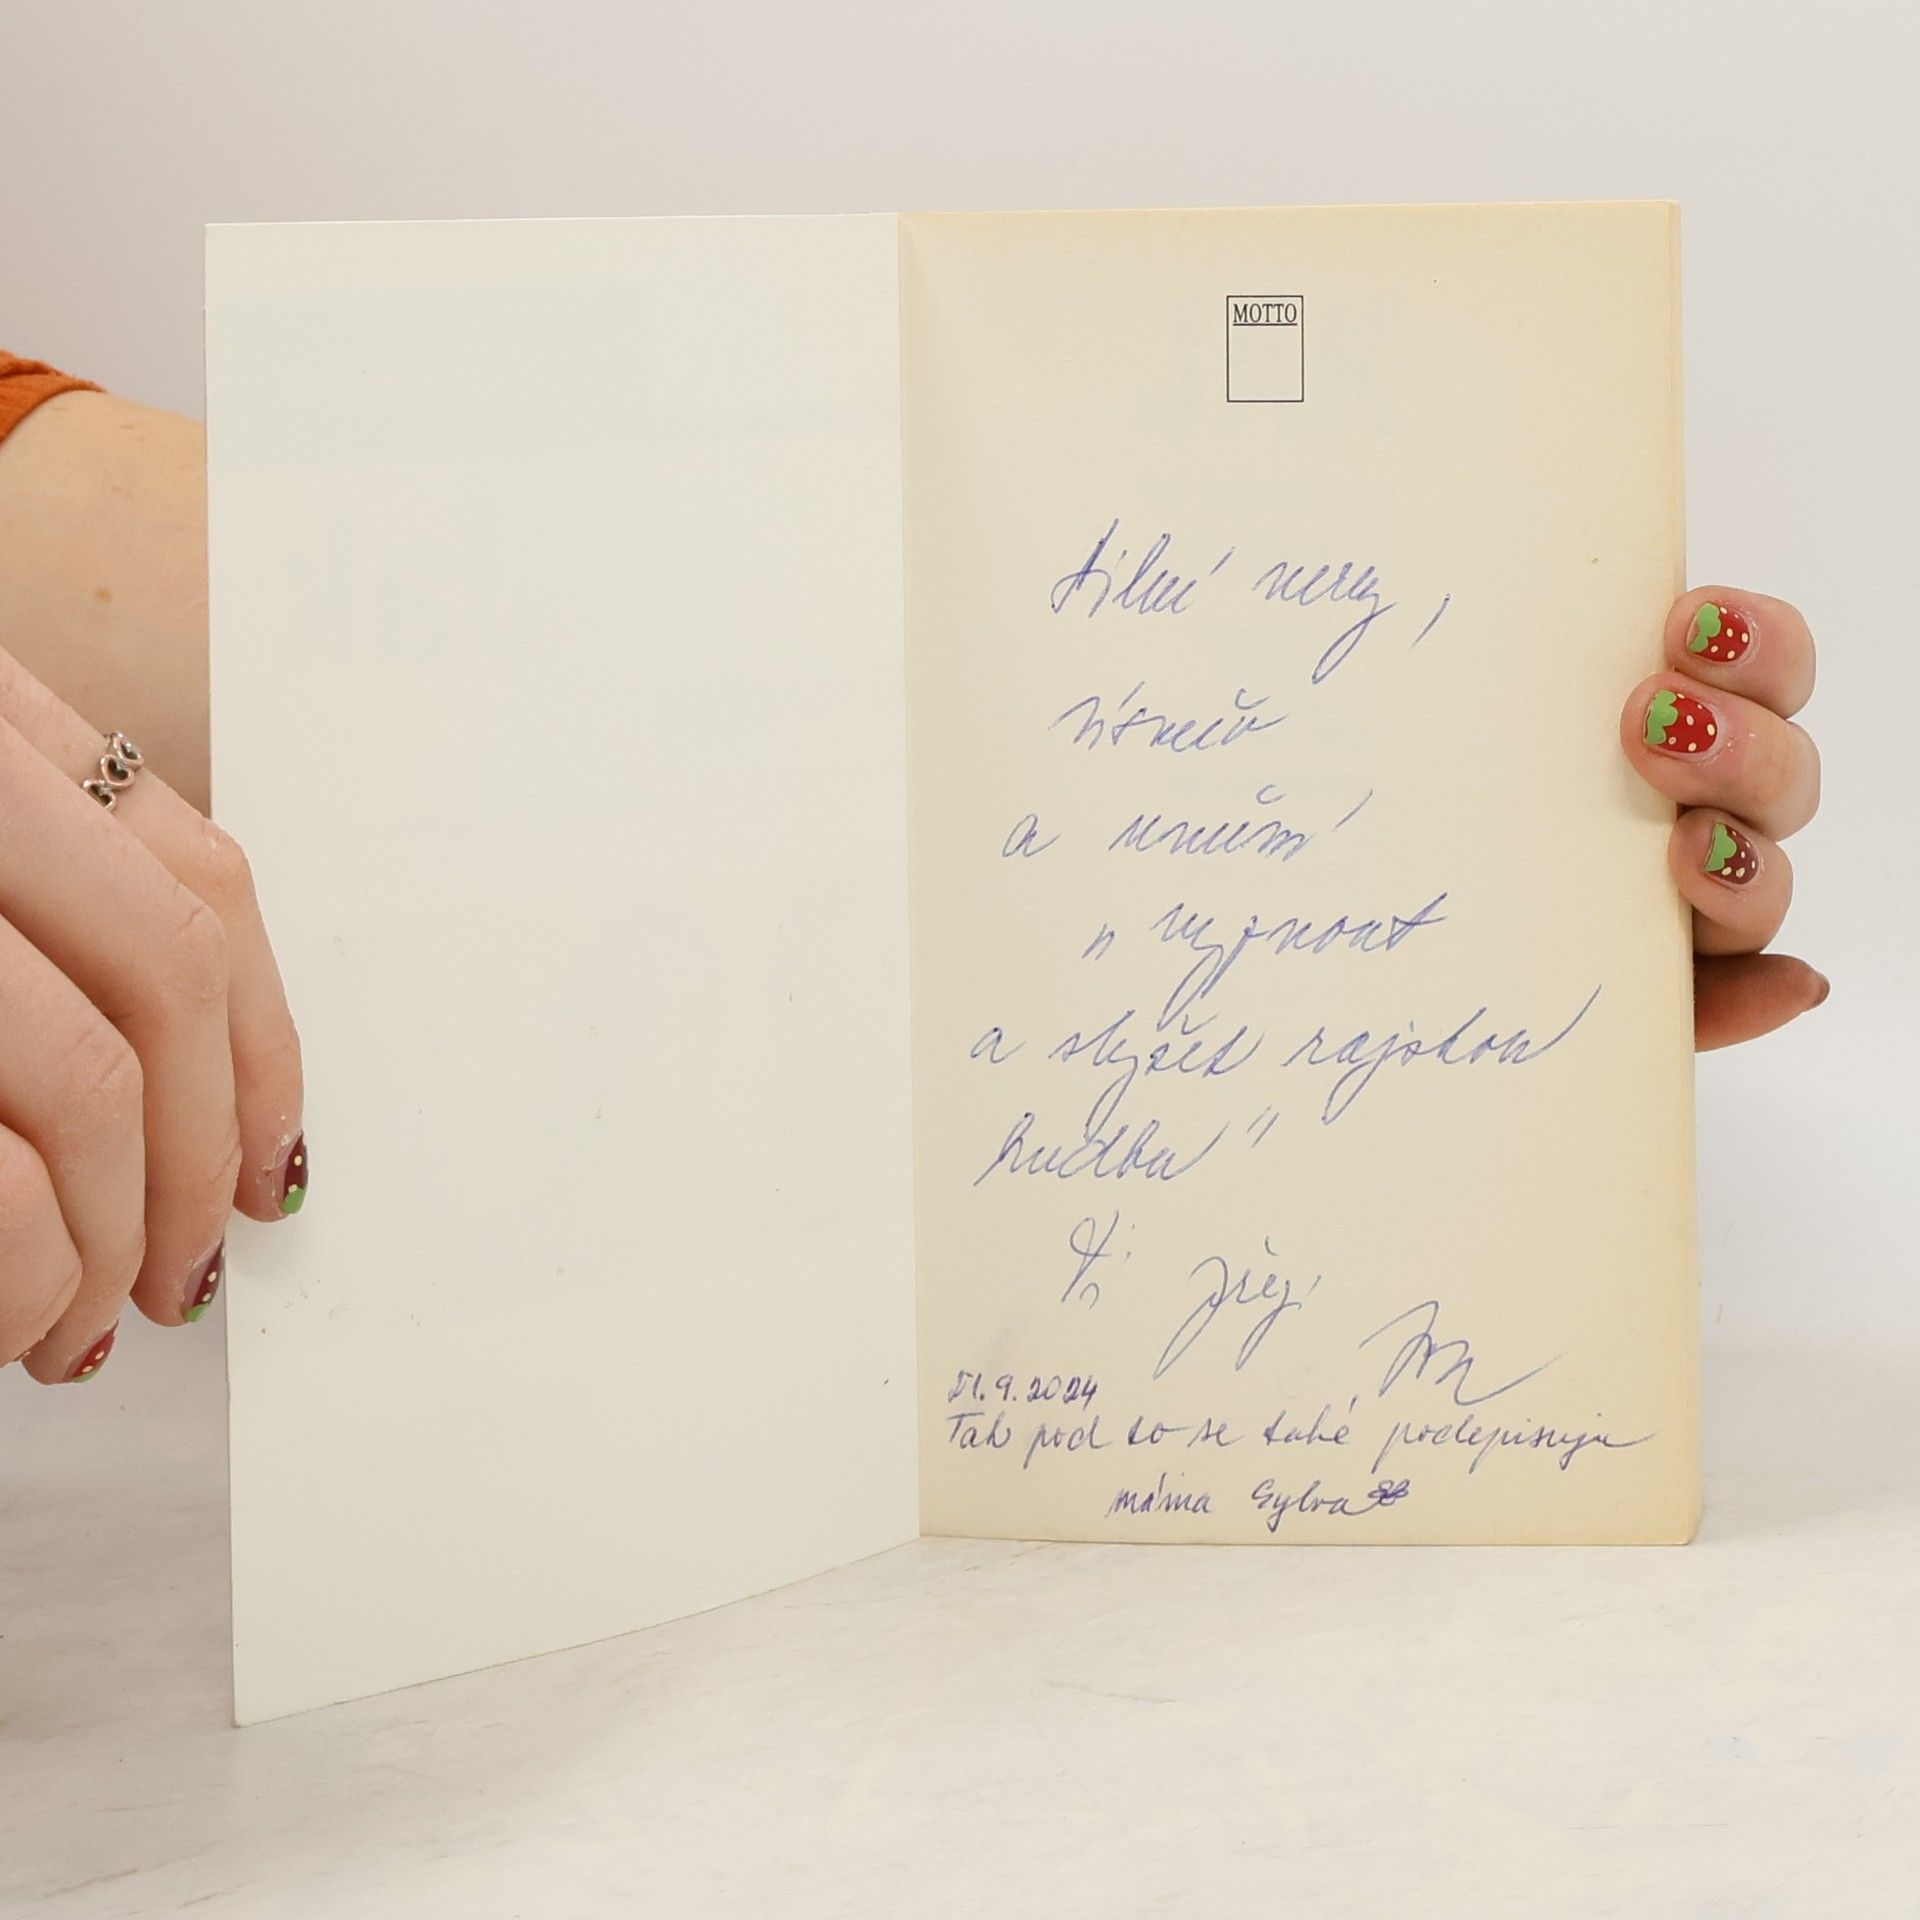 MOTTO
silné nervy,
úsměv
a umění
„ vypnout
a slyšet rajskou
hudbu "
Ti přeji
21.9.2024
Tak pod to se také podepisuju
máma Sylva